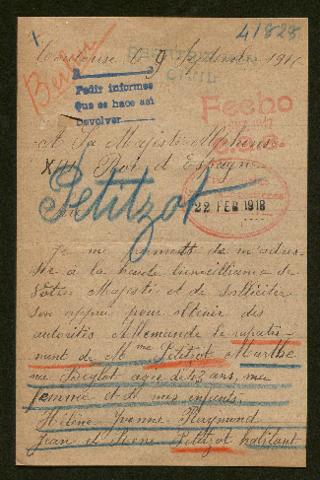 41828
Toulouse le 9 Septembre 191
Berlin
Pedir informes
Que se hace así
Devolver
A Sa Majesté Alphonse
XIII Roi d'Espagne
Petitzot
22 FEB 1918
Je me permets de m'adres-
ser à la haute bienveillance de
Votre Majesté et de solliciter
son appui pour obtenir des
autorités Allemande le rapatrie-
ment de Mme Petitzot Marthe
née Beylot agée de 43 ans, ma
femme et de mes enfants:
Hélène Yvonne Raymond
Jean et Petitzot habitant